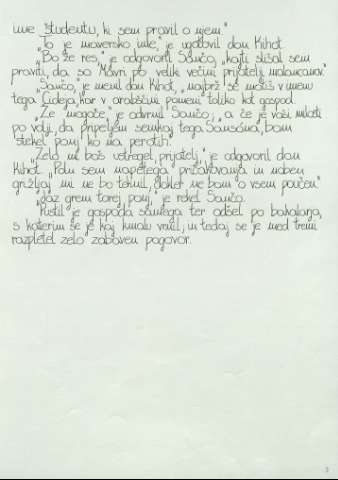 ime študentu, ki sem pravil o njem."
"To je maversko ime," je ugotovil don Kihot.
"Bo že res," je odgovoril Sančo, "kajti slišal sem
praviti, da so Mavri po veliki večini prijatelji malancanov."
"Sančo," je menil don Kihot, "najbrž se motiš v imenu
tega Cideja, kar v arabščini pomeni toliko kot gospod."
"Že mogoče," je odvrnil Sančo, "a če je vaši milosti
po volji, da pripeljem semkaj tega Sansóna, bom
stekel ponj ko na perotih."
"Zelo mi boš ustregel, prijatelj," je odgovoril don
Kihot. "Poln sem napetega pričakovanja in noben
grižljaj mi ne bo teknil, dokler ne bom o vsem poučen."
"Jaz grem torej ponj," je rekel Sančo.
Pustil je gospoda samega ter odšel po bakalarja,
s katerim se je kaj kmalu vrnil, in tedaj se je med tremi
razpletel zelo zabaven pogovor.
3